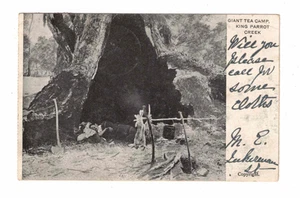 GIANT TEA CAMP.
KING PARROT
CREEK
Will you
please
call for
some
cloths
M. E.
Copyright.